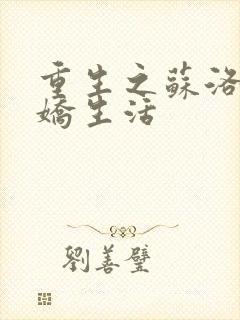 重生之蘇洛
嬌生活
劉善璧